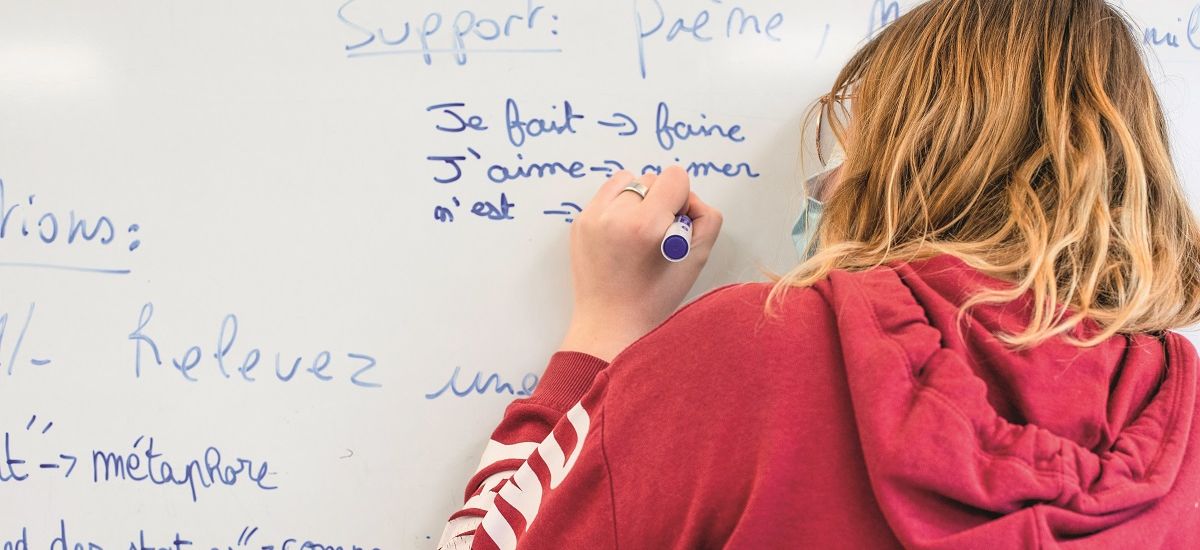 Support: poème,
Je fait → faire
J'aime → aimer
n'est →
tions:
1/- Relevez une
t" → métaphore